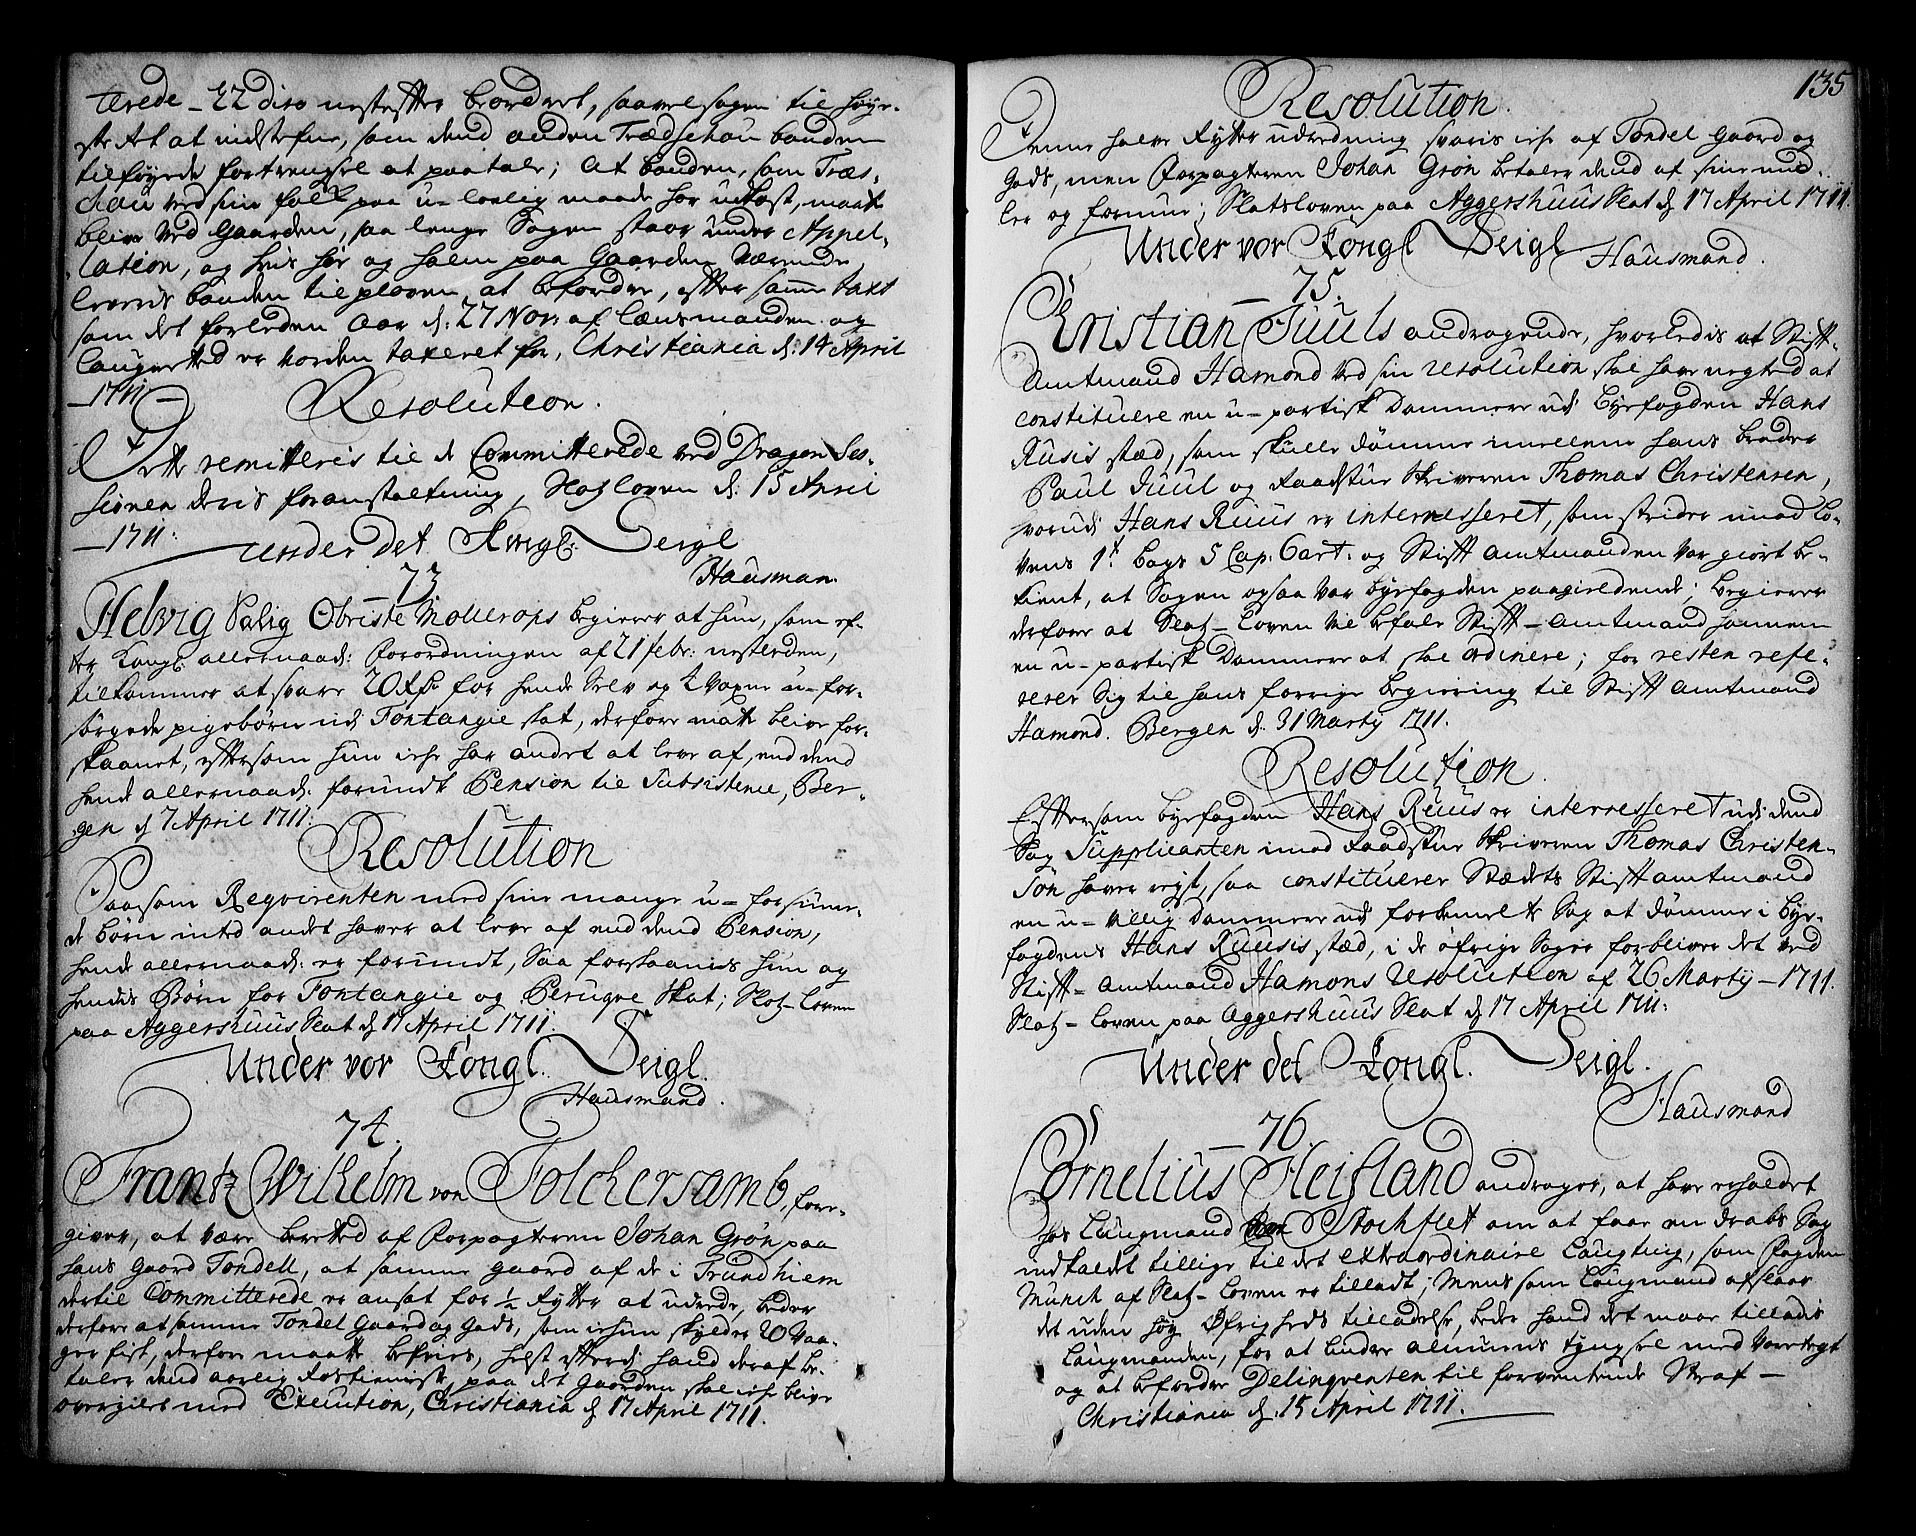 terede - 22 diso nestefter beordret, saavel sagen til Høye-
ste Ret at indstefne, som dend anden Trædschou bonden
tilføyede fortrengsel at paatale; At bonden, som Træs-
chou ved sin foll paa u-lovlig maade har udkast, maatte
blive ved Gaarden, saa lenge Sagen staar under Appel-
lation, og hvis hør og halm paa Gaarden værende
leveris bonden til ploven at befordre, efter samme taxt
som det forleden Aar d: 27 Nov: af Lænsmanden og
Laugretted er vorden taxeret for, Christiania d: 14 April
-1711-
Resolution.
Dette remitteris til de Committerede ved Dragon Ses-
sionen deris foranstaltning, Slotzloven d: 15 April
-1711:
under det Kongl: Seigl
Hausman.
73.
Helvig Salig Obriste Mollerops begierer at hun, som ef-
ter Kongl: allernaad: Forordningen af 21 febr: nestleden,
tilkommer at svare 20 Rdr for hende Selv og 2 Voxne u-for-
sørgede pigebørn udi Fontangie skat, derfore maatte blive for-
skaanet, eftersom hun icke har andet at leve af, end dend
hende allernaad: forundt Pension til Subsistence, Ber-
gen d 7 April 1711.
Resolution
Saasom Reqvirenten med sine mange u-forsiune-
de børn inted andet haver at leve af end dend Pension,
hende allernaad: er forundt, Saa forskaanis hun og
hendes Børn for Fontangie og Peruqve Skat; Slotz-Loven
paa Aggershuus Slot d 17 April 1711.
Under vor Kongl. Seigl.
Hausmand.
74.
Frantz Wilhelm von Folchersamb, fore-
giver, at være beretted af Forpagteren Johan Grøn paa
hans gaard Tondell, at samme gaard af de i Trundhiem
dertil Committerede er ansat for ½ Rytter at udrede, beder
derfore at samme Tondel Gaard og Gods, som ickun skylder 20 Vaa-
ger fisk, derfore maatte befries, helst efterdi hand deraf be-
taler dend aarlig Rostieniste, paa det Gaarden skal icke blive
overgiles med Execution, Christiania d 17 April 1711.
135
Resolution.
Denne halve Rytter udredning svaris icke af Tondel Gaard og
Gods, men Forpagteren Johan Grøn betaler dend af sine mid-
ler og formue; Slotsloven paa Aggershuus Slot d 17 April 1711.
Under vor Kongl Seigl
Hausmand.
75.
Kristian Juuls andragende, hvorledis at Stift-
Amtmand Hamond ved sin resolution skal have negted at
constituere en u-partisk Dommere udi byefogden Hans
Rusis stæd, som skulle dømme imellem hans broder
Paul Juul og Raadstue Skriveren Thomas Christensen,
vorudi Hans Ruus er interesseret, som strider imod Lo-
vens 1t Bogs 5 Cap: 6 art: og Stift Amtmanden var giort be-
kient, at Sagen ogsaa var byefogden paagieldende; begierer
derfore at Slotz-Loven vil befale Stift-Amtmand hannem
en u-partisk Dommere at skal ordinere; for resten refe-
rerer Sig til hans forrige begiering til Stift Amtmand
Hamond. Bergen d: 31 Marty 1711.
Resolution.
Eftersom byefogden Hans Ruus er interresseret udi dend
Sag Supplicanten imod Raadstue Skriveren Thomas Christen-
søn haver reyst, saa constituerer Stædets Stift Amtmand
en u-villig Dommere udi forbemelte Sag at dømme i bye-
fogdens Hans Ruusis stæd, i de øfrige Sager forbliver det ved
Stift-Amtmand Hamons resolution af 26 Marty-1711.
Slotz-Loven paa Aggershuus Slot d 17 April 1711:
Under det Kongl. Seigl.
Hausmand
76.
Cornelius Heifland andrager, at have erholdet
hos Laugmand Stochflet om at faae en drabs Sag
indkaldet tillige til det extraordinaire Laugting, som Fogden
Munch af Slotz-Loven er tilladt; Mens som Laugmand afslaar
det uden høy Øfrigheds tilladelse, beder hand det maae tilladis
Laugmanden, for at lindre almuens tyngsel med Varetegt
og at befordre Delinqventen til forventende Straf-
Christiania d: 15 April 1711.